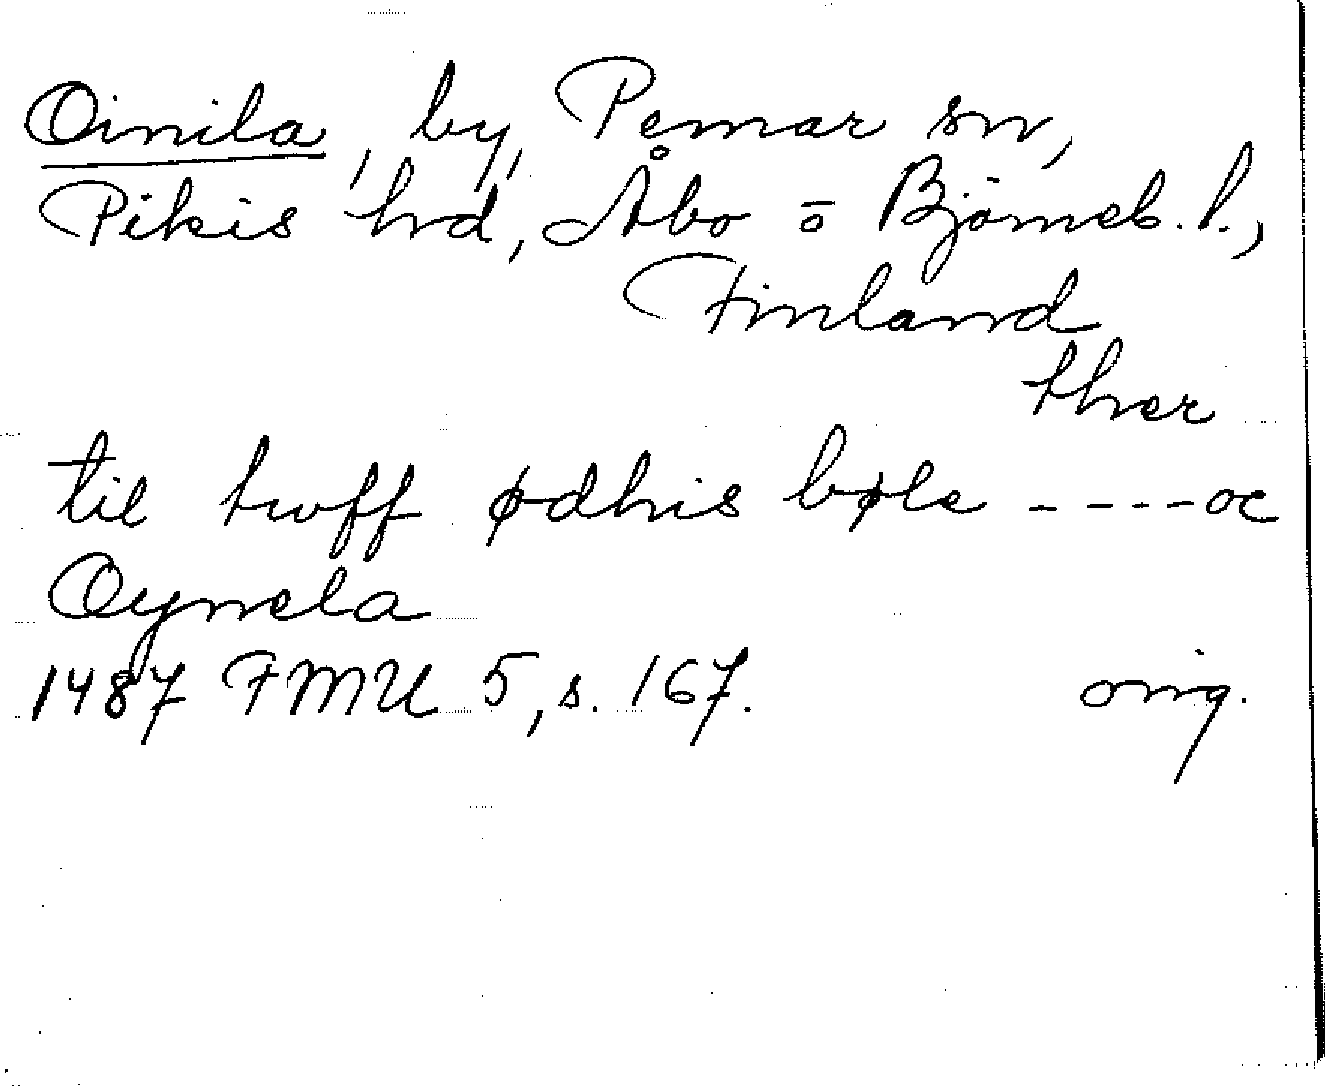 Oinila, by, Pemar sn,
Pikis hrd, Åbo o Björneb. l.,
Finland
ther
til twff ødhis bøle ----oc
Oynela
1487 FMU 5, s. 167. orig.